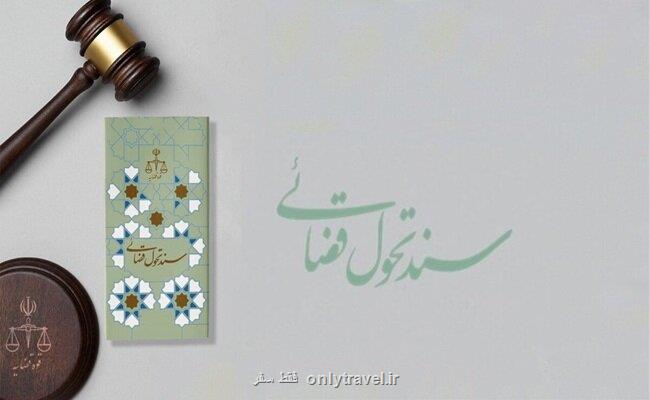 قوه قضاییه
سند تحول قضائی
سند تحول قضائی
قوه قضاییه
فقط سفر onlytravel.ir